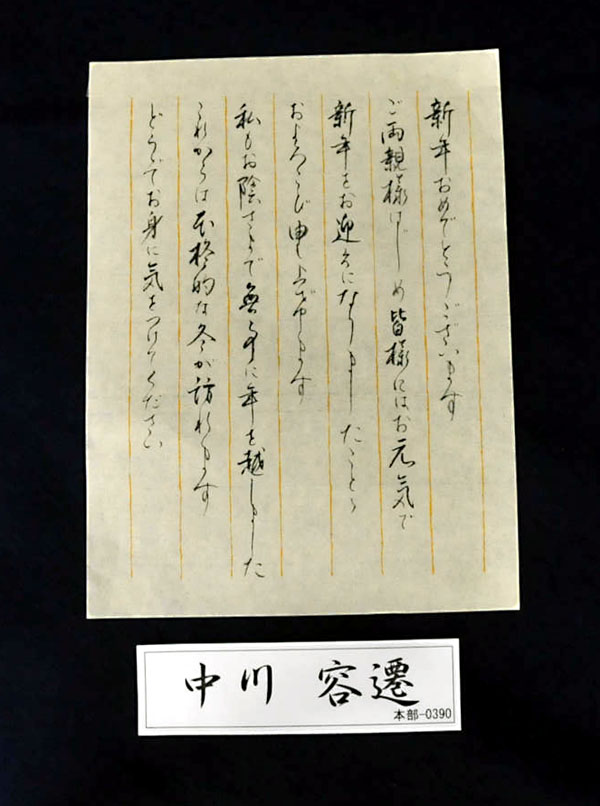 新年おめでとうございます
ご両親様はじめ皆様にはお元気で
新年をお迎えになりましたことゝ
およろこび申し上げます
私もお陰さまで無事に年を越しました
これからは本格的な冬が訪れます
どうぞお身に気をつけてください
中川 容遷
本部-0390